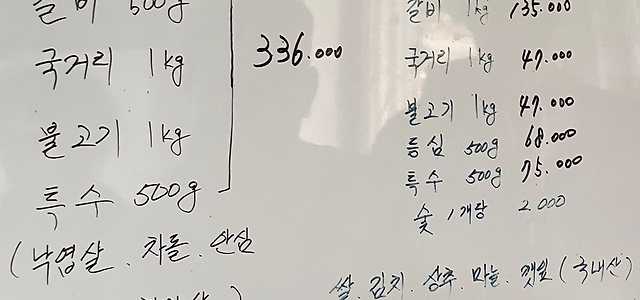 갈비 500g
국거리 1kg
336.000
불고기 1kg
특수 500g
(낙엽살. 차돌. 안심
갈비 1kg 135.000
국거리 1kg 47.000
불고기 1kg 47.000
등심 500g 68.000
특수 500g 75.000
숯 1개당 2.000
쌀. 김치. 상추. 마늘. 깻잎 (국내산)